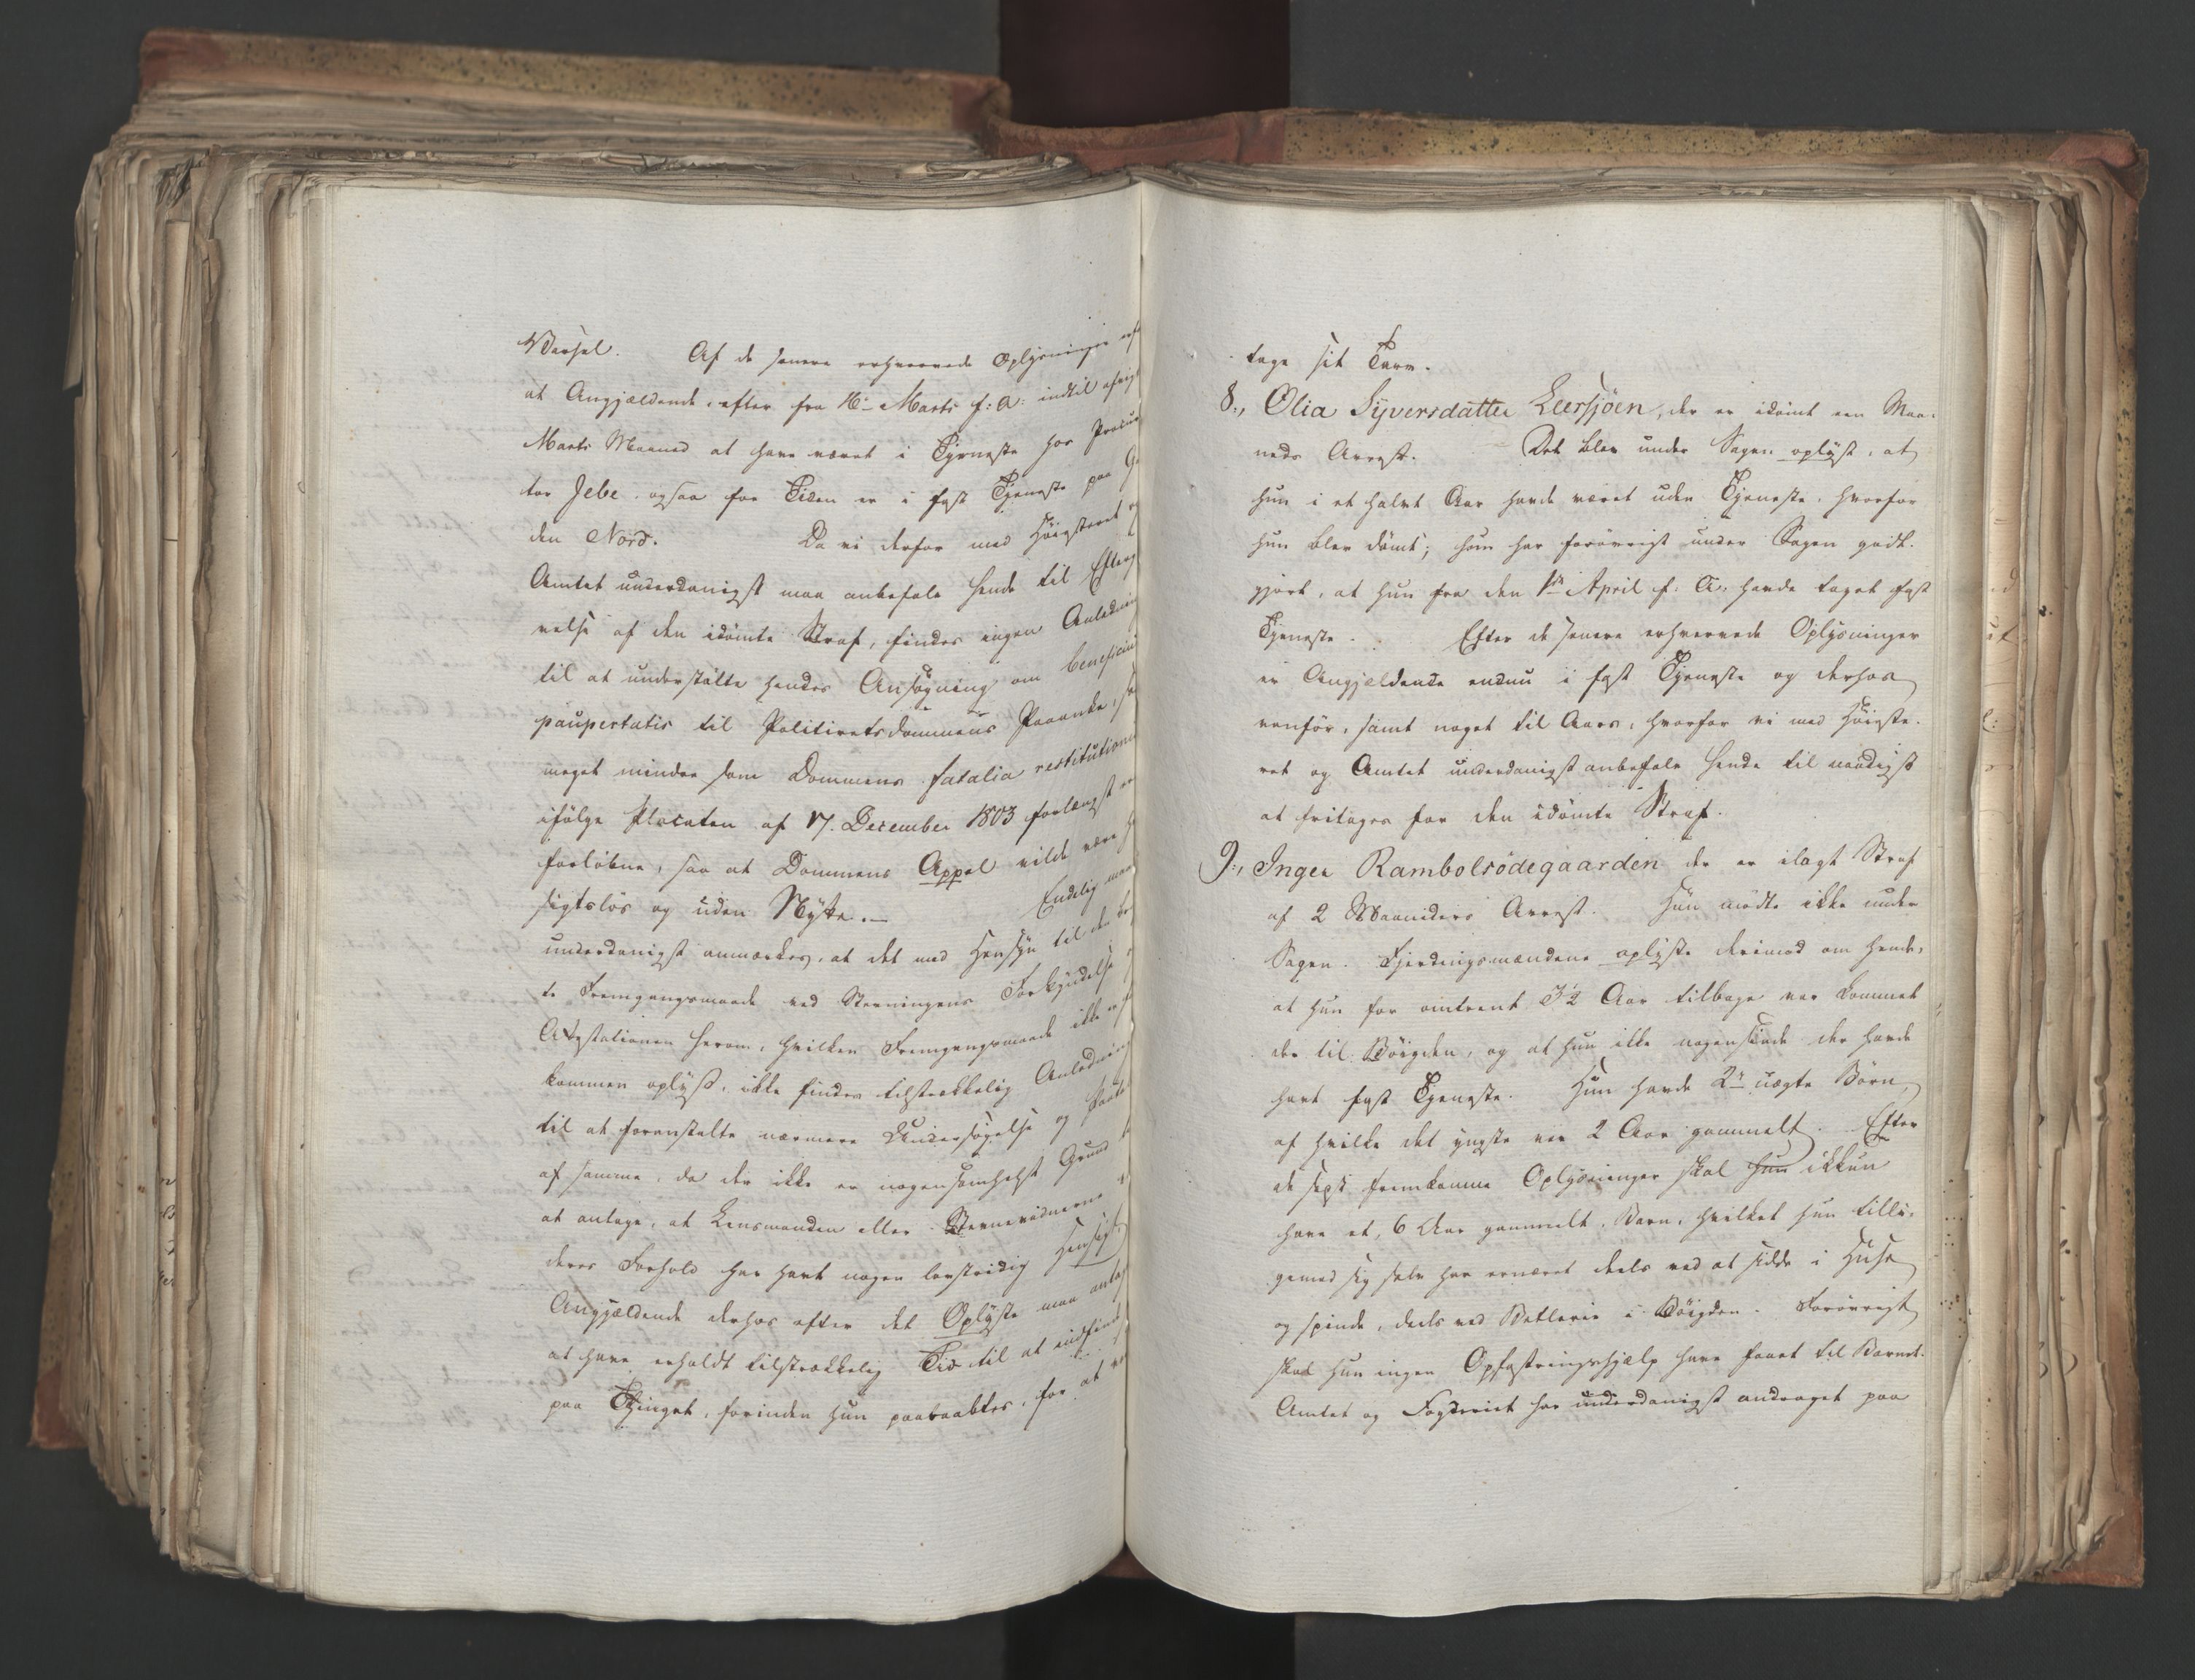 Varsel. Af de senere erhvervede Oplysninger
at Angjældende, efter fra 16de Marts f: A: indtil
Marts Maaned at have været i Tjeneste hos
tor Jebe, ogsaa for Tiden er i fast Tjeneste paa
den Nord. Da vi derfor med Höiesteret
Amtet underdanigst maa anbefale hende til
velse af den idömte Straf, findes ingen Anledning
til at understötte hendes Ansögning om beneficium
paupertatis til Politieretsdommens Paaanke,
meget mindre som Dommens fatalia restitutionis
ifölge Placaten af 17. December 1803 forlængst
forlöbne, saa at Dommens Appel vilde være
sigtslös og uden Nytte.— Endelig maa
underdanigst anmærkes, at det med Hensyn til den
te Fremgangsmaade ved Stevningens Forkyndelse
Attestationen herom, hvilken Fremgangsmaade ikke er
kommen oplyst, ikke findes tilstrækkelig Anledning
til at foranstalte nærmere Undersögelse og
af samme, da der ikke er nogensomhelst Grund
at antage, at Lensmanden eller Stevnevidnerne
deres Forhold har havt nogen lovstridig Hensigt,
Angjældende derhos efter det Oplyste maa antages
at have erholdt tilstrækkelig Tid til at indfinde
paa Thinget, forinden hun paaraabtes, for at
tage sit Tarv.
8., Olia Syversdatter Leersjöen, der er idömt een Maa-
neds Arrest. Det blev under Sagen oplyst, at
hun i et halvt Aar havde været uden Tjeneste, hvorfor
hun blev dömt; hun har forövrigt under Sagen godt-
gjort, at hun fra den 1ste April f: A. havde taget fast
Tjeneste. Efter de senere erhvervede Oplysninger
er Angjældende endnu i fast Tjeneste og derhos
vanför, samt noget til Aars, hvorfor vi med Höieste-
ret og Amtet underdanigst anbefale hende til naadigst
at fritages for den idömte Straf.
9., Inger Rambolsödegaarden der er ilagt Straf
af 2 Maaneders Arrest. Hun mödte ikke under
Sagen. Fjerdingsmændene oplyste derimod om hende,
at hun for omtrent 3½ Aar tilbage var kommet
der til Böigden, og at hun ikke nogensinde der havde
havt fast Tjeneste. Hun havde 2de uægte Börn,
af hvilke det yngste var 2 Aar gammelt. Efter
de sidst fremkomne Oplysninger skal hun ikkun
have et, 6 Aar gammelt, Barn, hvilket hun tilli-
gemed sig selv har ernæret deels ved at sidde i Huse
og spinde, deels ved Betlerie i Böigden. Forövrigt
skal hun ingen Opfostringshjælp have faaet til Barnet.
Amtet og Fogderiet har underdanigst andraget paa